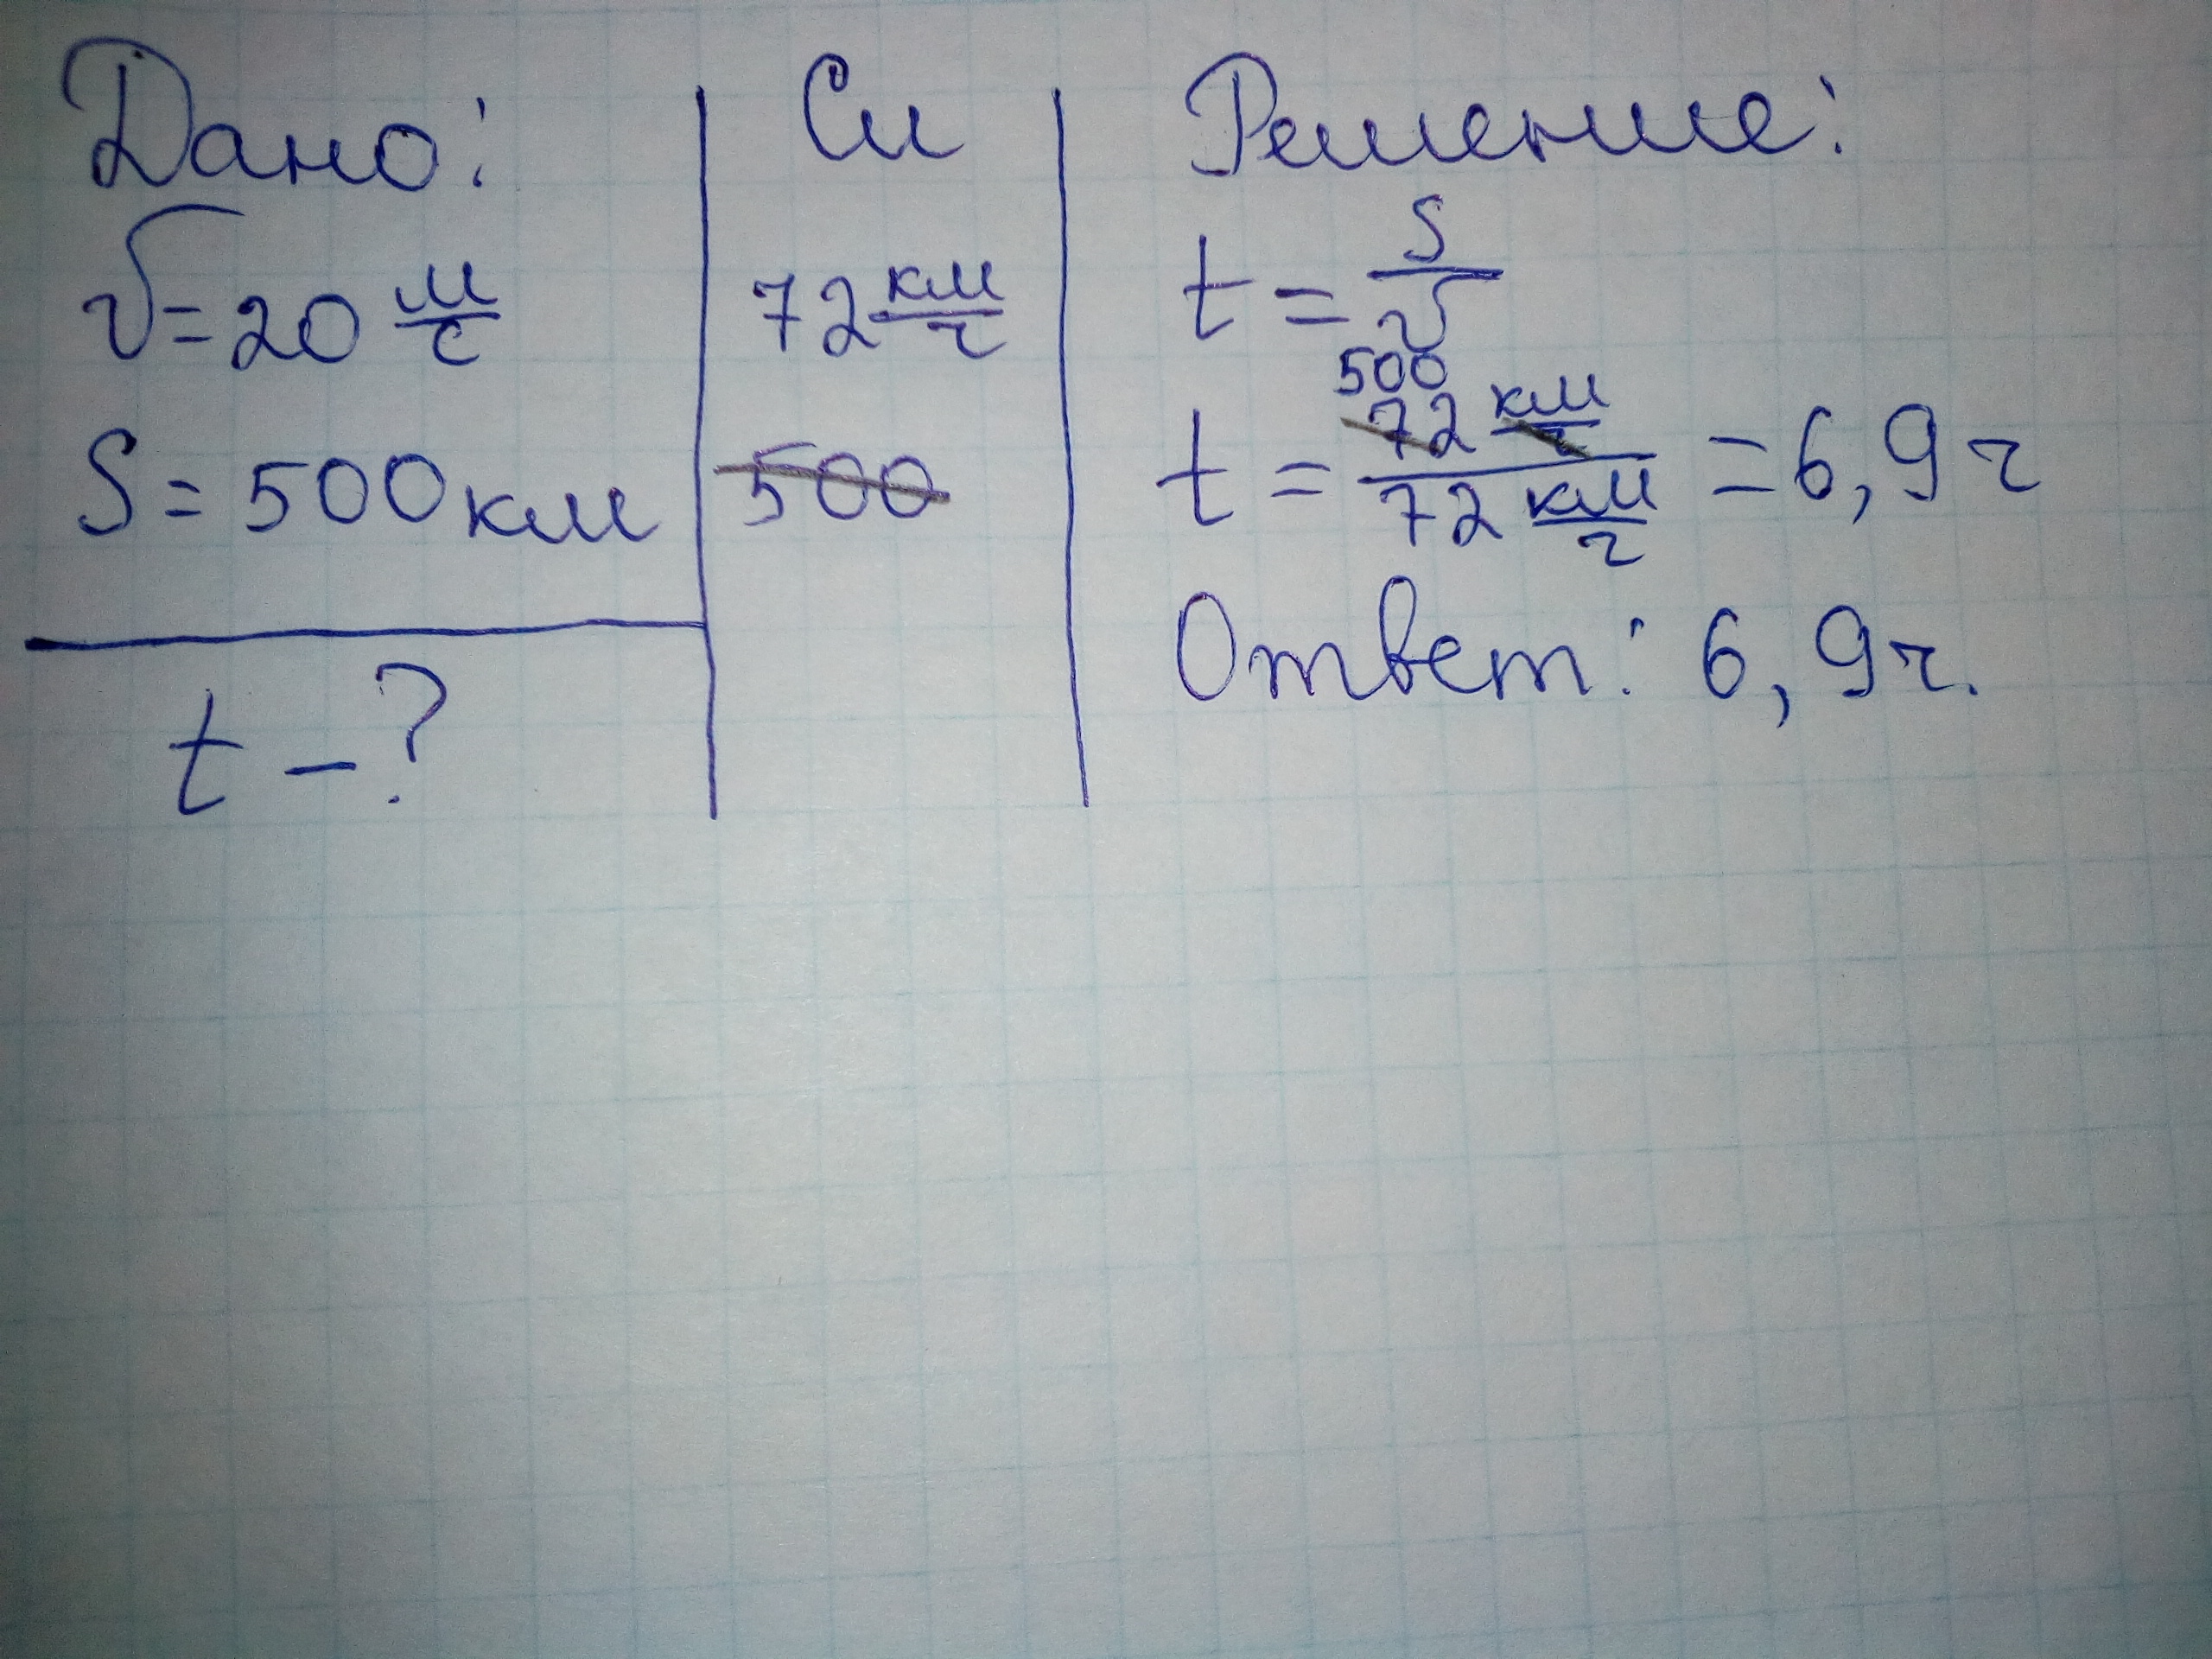 Дано:
v = 20 м/с
S = 500 км
t - ?
Си
72 км/ч
500
Решение:
t = S/v
500
t = 72 км/ч / 72 км/ч = 6,9 ч
Ответ: 6,9 ч.